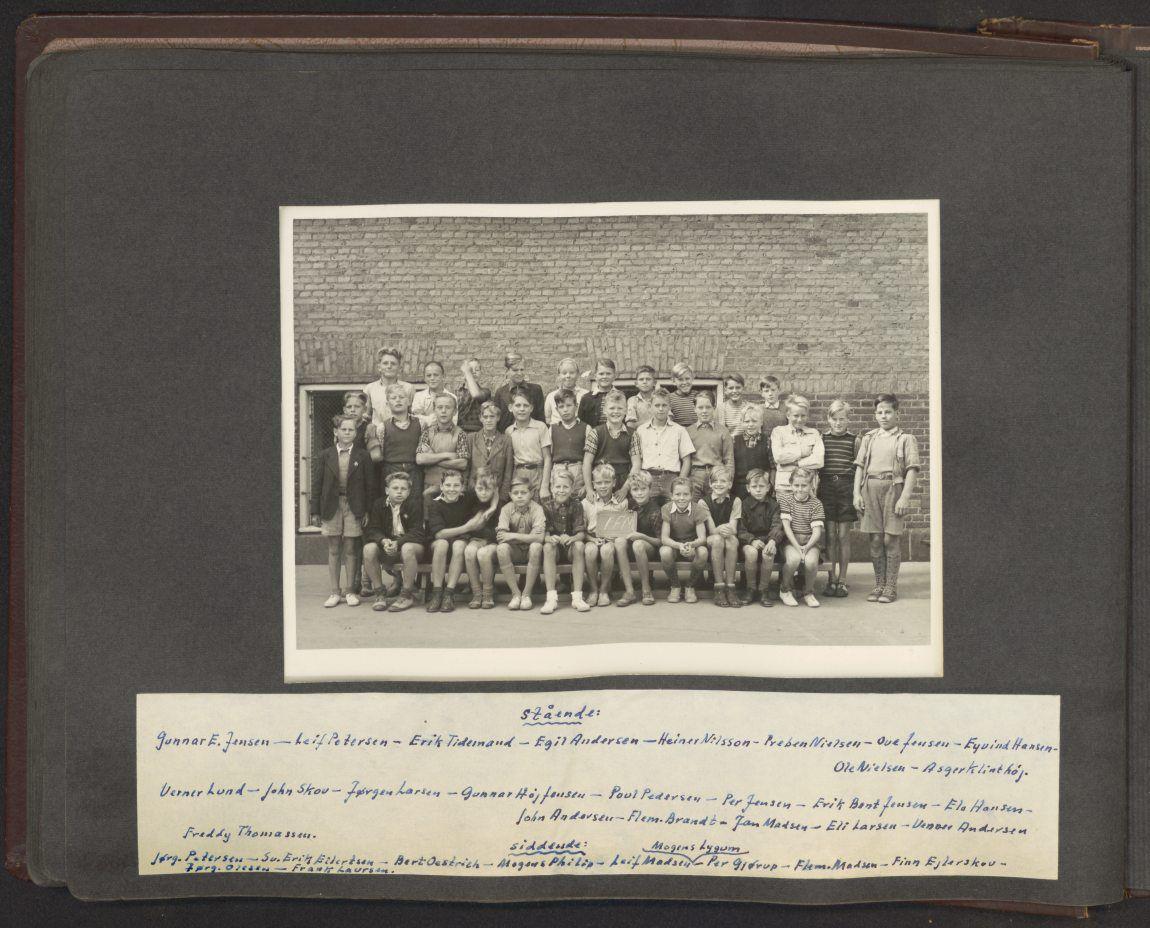 1 FM
stående:
Gunnar E. Jensen — Leif Petersen — Erik Tidemand — Egil Andersen — Heiner Nilsson - Preben Nielsen - Ove Jensen - Eyvind Hansen -
Ole Nielsen - Asger Klinthøj.
Verner Lund - John Skov - Jørgen Larsen - Gunnar Høj Jensen - Poul Pedersen - Per Jensen - Erik Bent Jensen - Elo Hansen -
John Andersen - Flem. Brandt - Jan Madsen - Eli Larsen - Verner Andersen
Freddy Thomassen.
siddende:
Mogens Lygum
Jørg. Petersen - Sv. Erik Eilertsen - Bert Oestrich - Mogens Philip - Leif Madsen - Per Gjørup - Flem. Madsen - Finn Ejlerskov -
Jørg. Olesen - Frank Laursen.